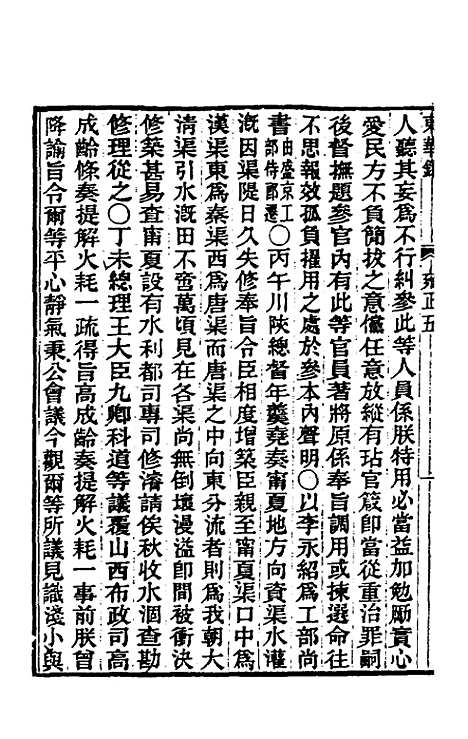 東華錄 雍正五 一
人聽其妄爲不行糾參此等人員係朕特用必當益加勉勵實心
愛民方不負簡拔之意儻任意放縱有玷官箴卽當從重治罪嗣
後督撫題參官內有此等官員著將原係奉旨調用或揀選命往
不思報效孤負擢用之處於參本內聲明〇以李永紹爲工部尚
書由盛京工部侍郎遷〇丙午川陝總督年羹堯奏甯夏地方向資渠水灌
漑因渠隄日久失修奉旨令臣相度增築臣親至甯夏渠口中爲
漢渠東爲秦渠西爲唐渠而唐渠之中向東分流者則爲我朝大
清渠引水漑田不啻萬頃見在各渠尚無倒壞漫溢卽間被衝決
修築甚易查甯夏設有水利都司專司修濬請俟秋收水涸查勘
修理從之〇丁未總理王大臣九卿科道等議覆山西布政司高
成齡條奏提解火耗一疏得旨高成齡奏提解火耗一事前朕曾
降諭旨令爾等平心靜氣秉公會議今觀爾等所議見識淺小與